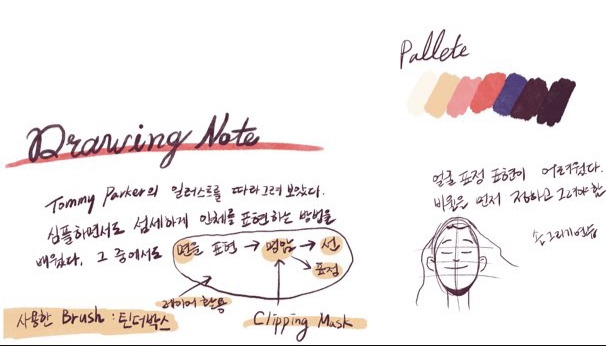 Pallete
Drawing Note
Tommy Parker의 일러스트를 따라그려 보았다.
심플하면서도 섬세하게 인체를 표현하는 방법을
배웠다. 그 중에서도 면을 표현 → 명암 → 선
표정
레이어 활용
사용한 Brush : 틴더박스
Clipping Mask
얼굴 표정 표현이 어려웠다.
비율을 먼저 정하고 그려야 함
손그리기연습